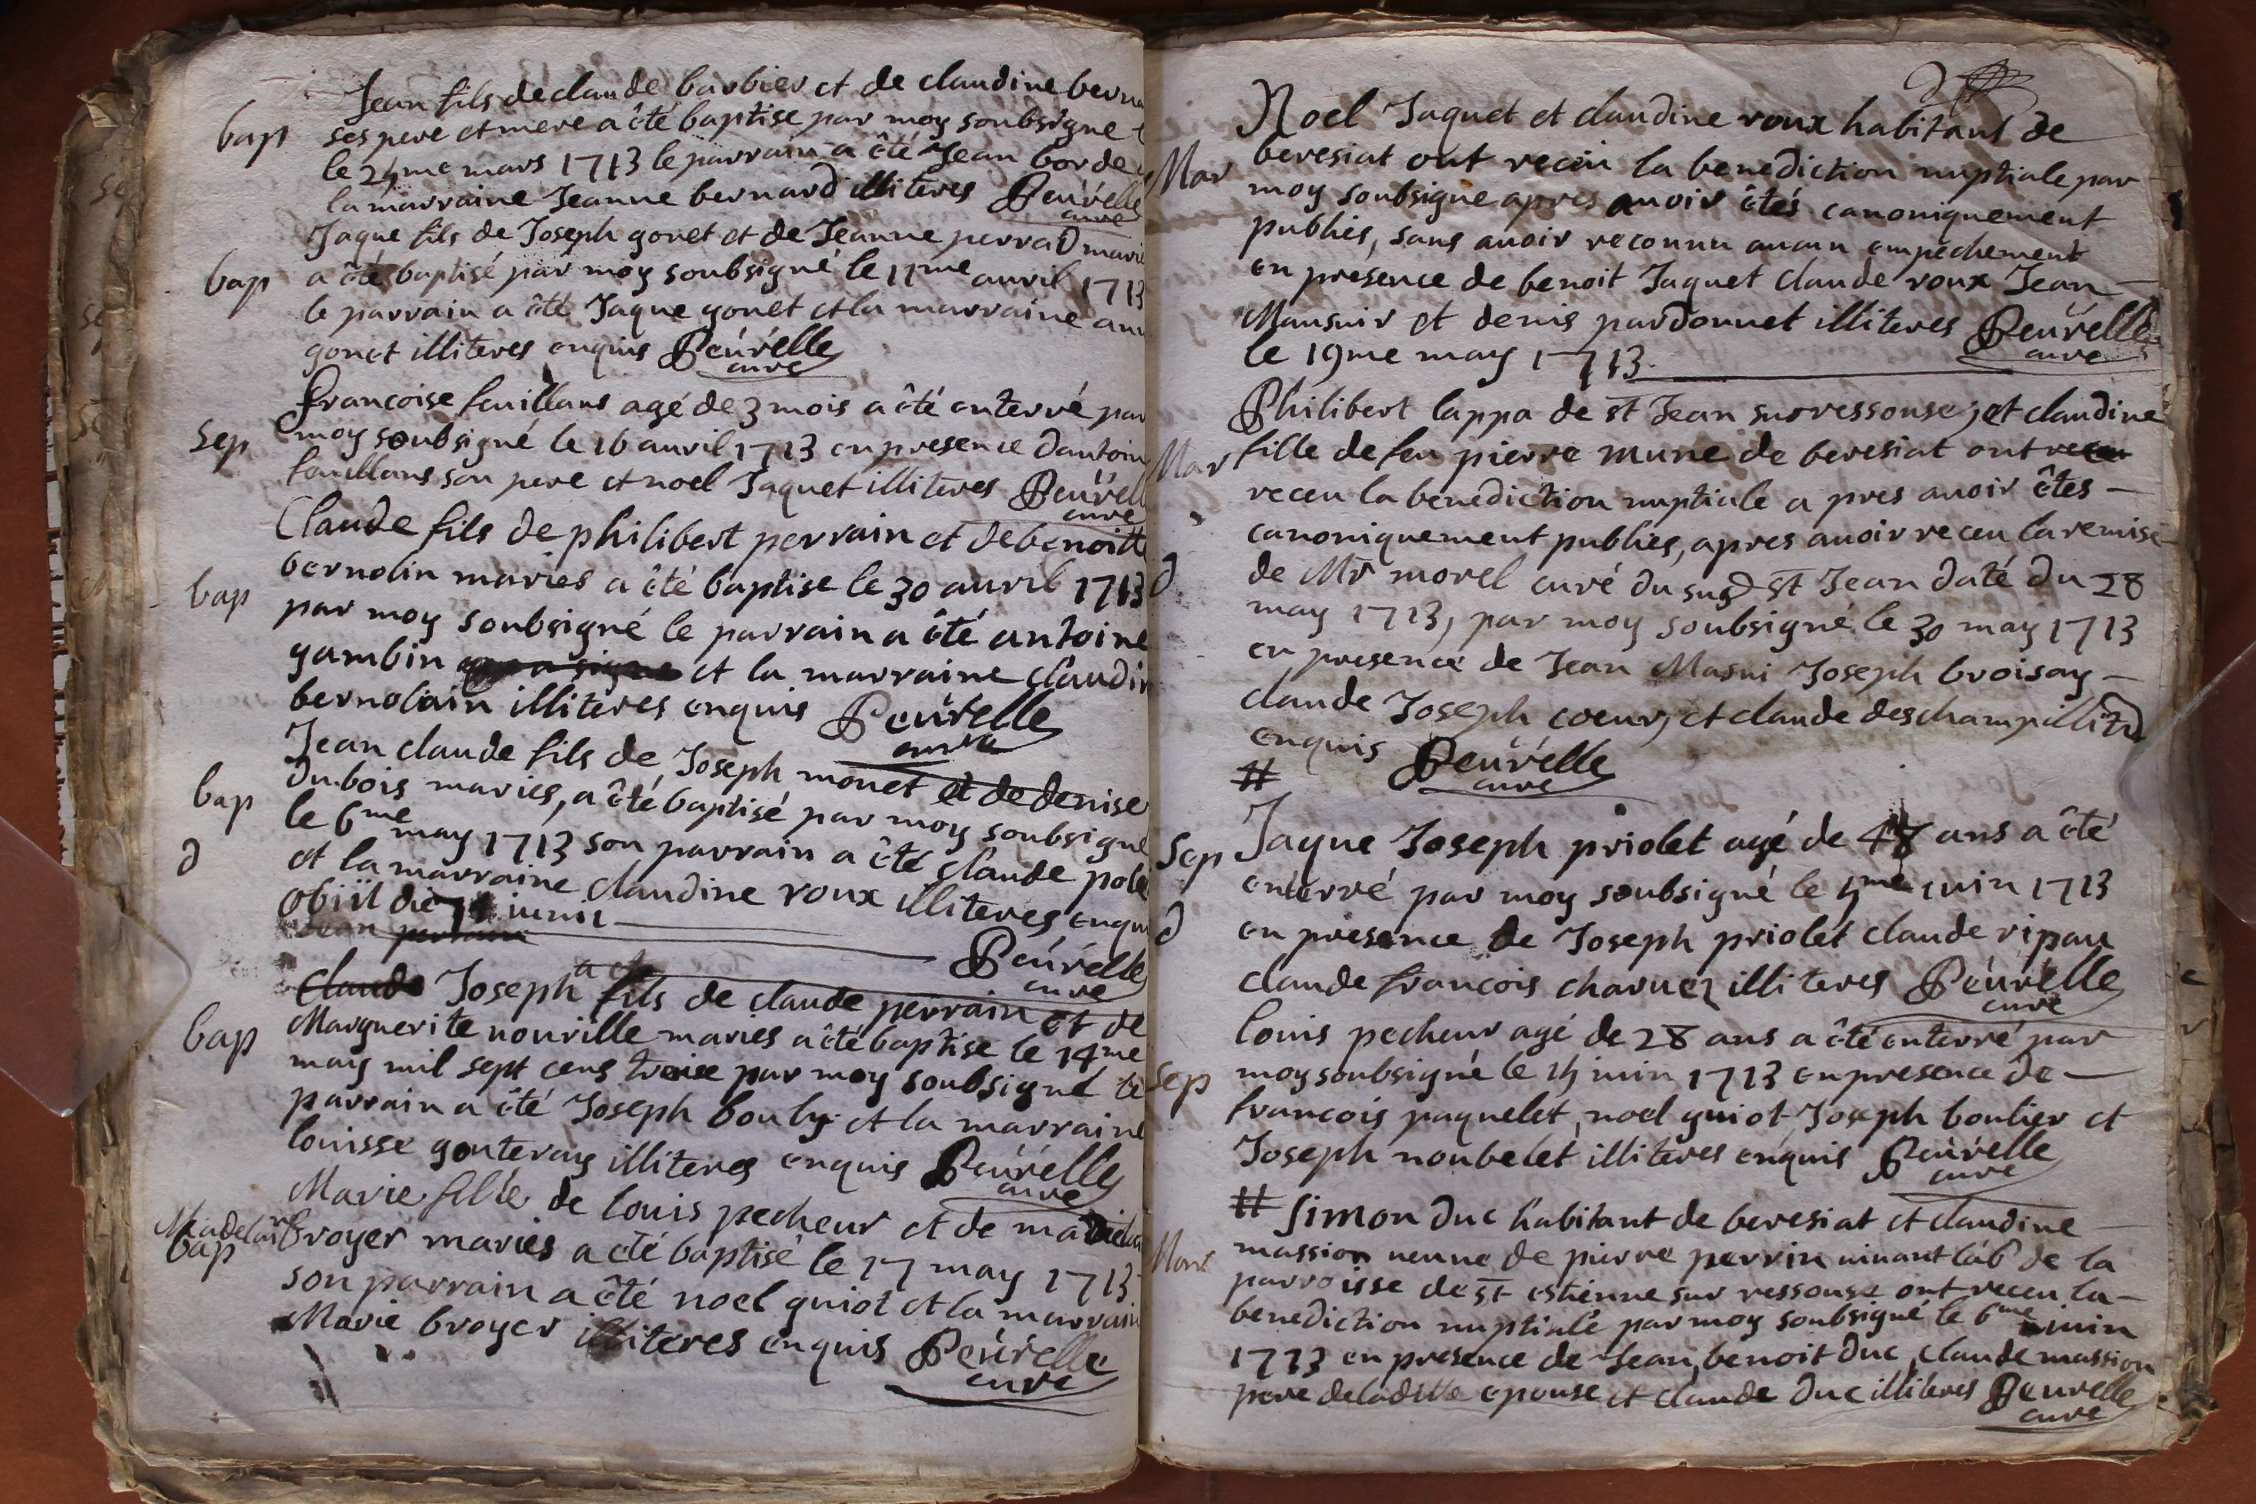 bap
Jean fils de claude barbier et de claudine berna
ses pere et mere a êté baptise par moy soubsigne
le 24me mars 1713 le parrain a êté Jean borde
la marraine Jeanne bernard illiteres Beurelle
curé
bap
Jaque fils de Joseph gonet et de Jeanne perraD marie
a êté baptisé par moy soubsigné le 11me auril 1713
le parrain a êté Jaque gonet et la marraine ann
gonet illiteres enquis Beurelle
curé
Sep
francoise feuillans agé de 3 mois a êté enterré par
moy soubsigné le 16 auril 1713 en presence dantoin
feuillans son pere et noel Jaquet illiteres Beurell
curé
bap
Claude fils de philibert perrain et de benoitte
bernolin maries a êté baptise le 30 auril 1713
par moy soubsigné le parrain a êté antoine
gambin et la marraine claudin
bernolain illiteres enquis Beurelle
curé
bap
Jean claude fils de Joseph monet et de denise
Dubois maries, a êté baptisé par moy soubsigne
le 6me may 1713 son parrain a êté claude pole
d
et la marraine claudine roux illiteres enqui
obiit die junii
Jean perrain
Beurelle
curé
bap
Claude Joseph fils de claude perrain et de
Marguerite nourille maries a êté baptise le 14me
may mil sept cens treise par moy soubsigné le
parrain a êté Joseph bouly et la marraine
louisse gouteray illiteres enquis Beurelle
curé
Marie fille de louis pecheur et de
Madelain
bap
broyer maries a eté baptisé le 17 may 1713
son parrain a êté noel guiot et la marrain
Marie broyer illiteres enquis Beurelle
curé
Mar
Noel Jaquet et claudine roux habitant de
beresiat ont receu la benediction nuptiale par
moy soubsigne apres auoir êtés canoniquement
publiés, sans auoir reconnu aucun empechement
en presence de benoit Jaquet claude roux Jean
Mansuir et denis pardonnet illiteres Beurelle
curé
le 19me may 1713.
Mar
Philibert lappa de st Jean sur ressonse, et claudine
fille de feu pierre mune de beresiat ont receu
receu la benediction nuptiale a pres auoir êtes
canoniquement publies, apres auoir receu la remise
d
de Mr morel curé du susd st Jean daté du 28
may 1713, par moy soubsigné le 30 may 1713
en presence de Jean Masui Joseph broisay
claude Joseph coeur, et claude deschamp illit
enquis Beurelle
curé
#
Sep
Jaque Joseph priolet agé de 48 ans a êté
enterré par moy soubsigné le 4me iuin 1713
d
en presence de Joseph priolet claude ripau
claude francois charuez illiteres Beurelle
curé
louis pecheur agé de 28 ans a êté enterré par
Sep
moy soubsigné le 14 iuin 1713 en presence de
francois paquelet, noel guiot Joseph boulier et
Joseph noubelet illiteres enquis Beurelle
curé
# simon duc habitant de beresiat et claudine
Mar
massion ueuue de pierre perrin uiuant lab de la
parroisse de st estienne sur ressouse ont receu la
benediction nuptiale par moy soubsigné le 6me iuin
1713 en presence de Jean, benoit duc, claude massion
pere de ladite epouse et claude duc illiteres Beurelle
curé